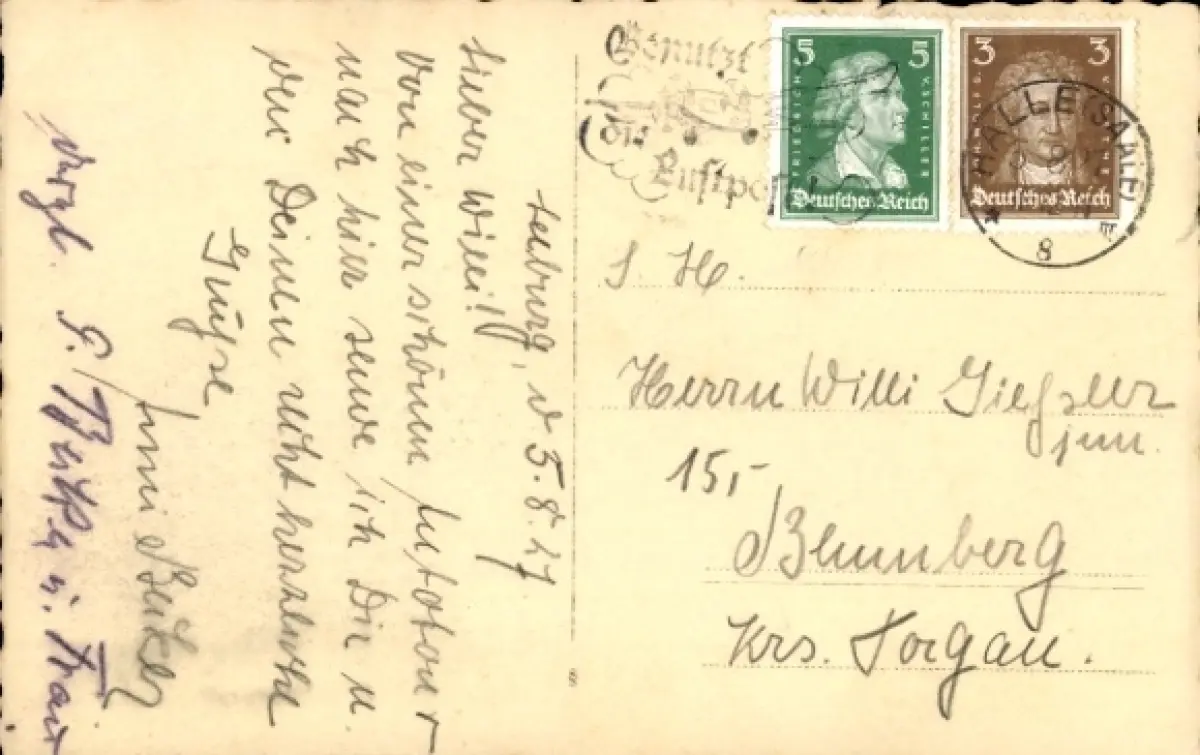 Benutzt
die
Luftpost
5 5
FRIEDRICH V. SCHILLER
Deutsches Reich
3 3
Deutsches Reich
HALLE (SAALE)
8
S. H.
Herrn Willi Gießler
jun.
15,-
Blumberg
Krs. Torgau.
burg, d 5.8.27
Lieber Willi!
Von einer schönen Autotour
nach hier sende ich Dir u.
den Deinen recht herzliche
Grüße
u. Frau